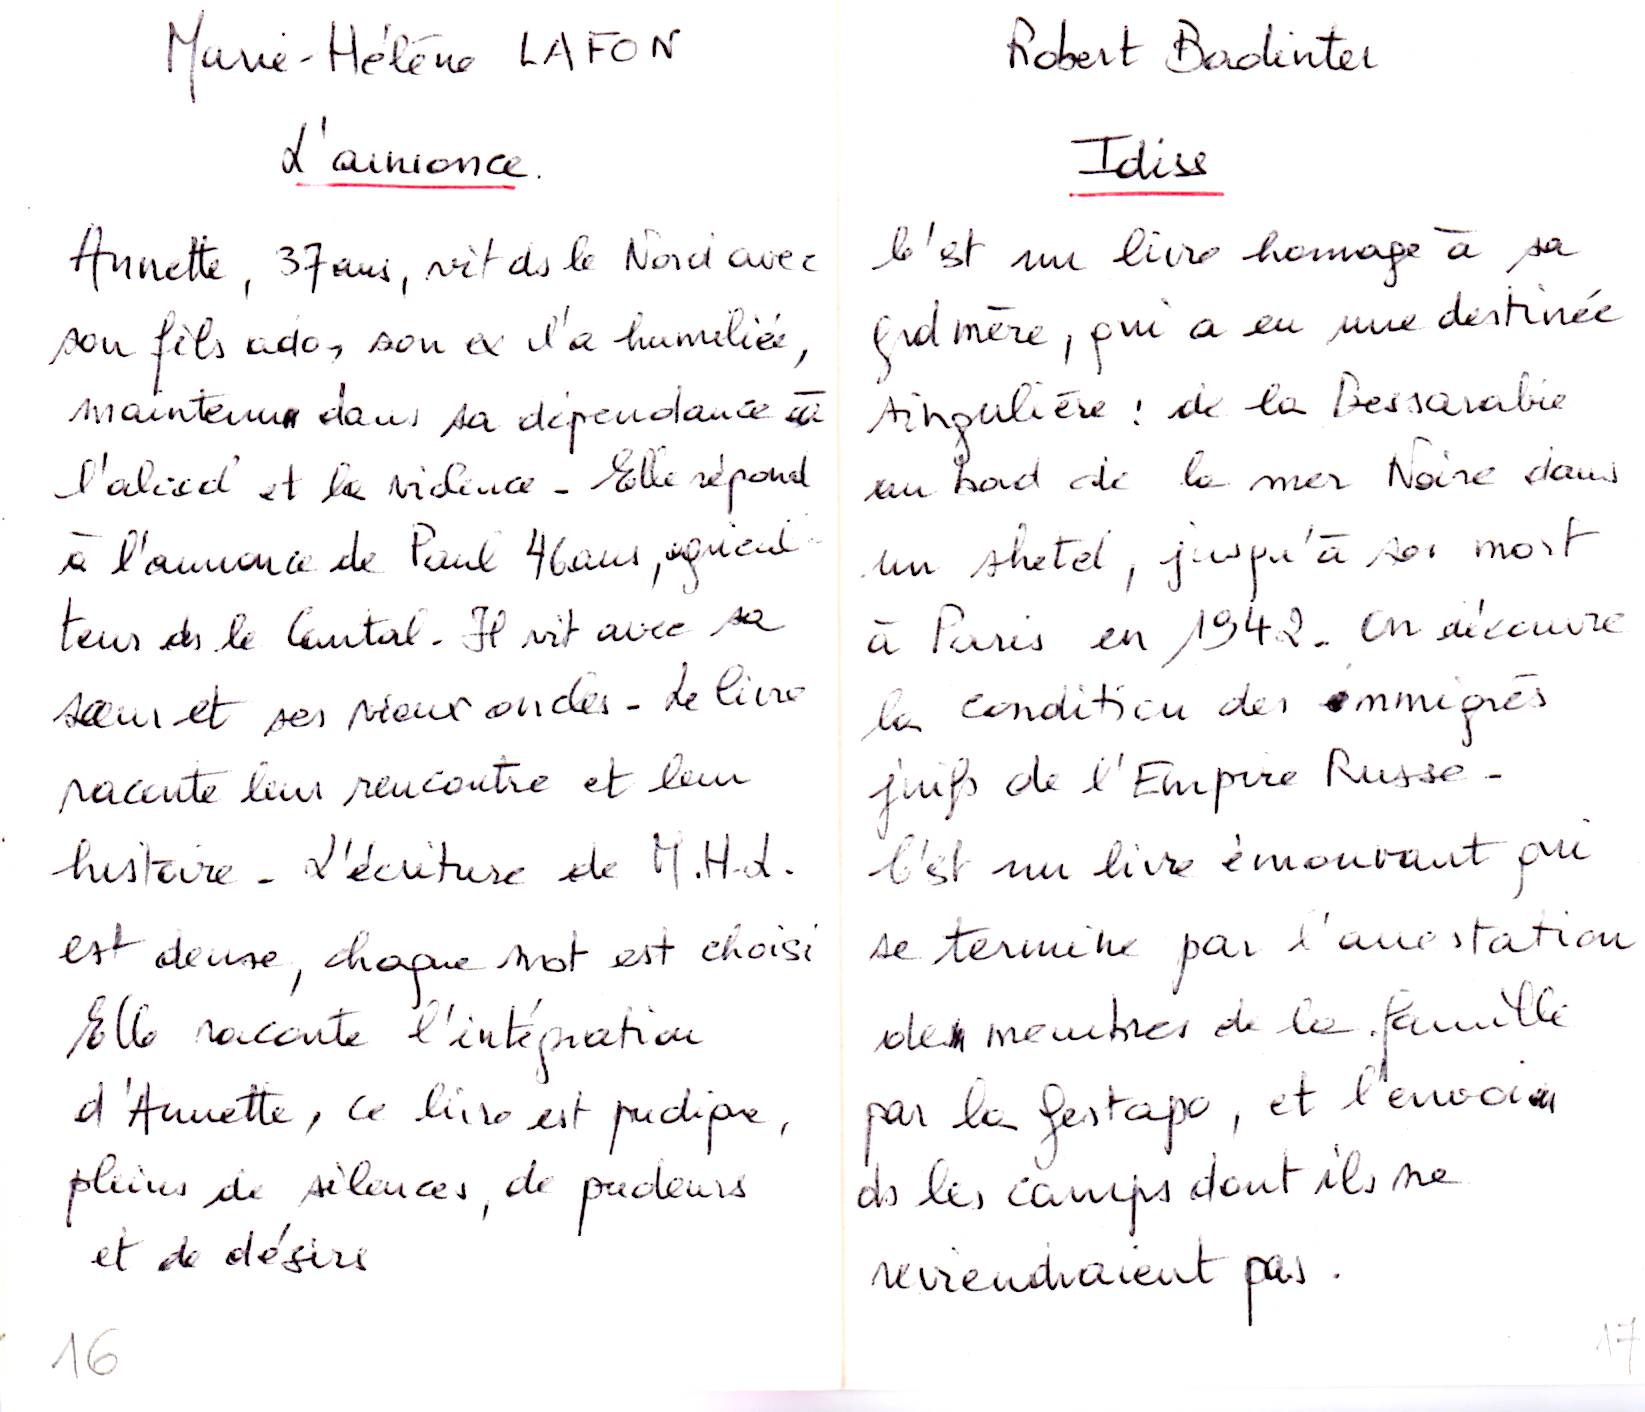 Marie-Hélène LAFON
L'annonce.
Annette, 37 ans, vit ds le Nord avec
son fils ado, son ex l'a humiliée,
maintenue dans sa dépendance à
l'alcool et la violence - Elle répond
à l'annonce de Paul 46 ans, agricul-
teur ds le Cantal - Il vit avec sa
sœur et ses vieux oncles - Le livre
raconte leur rencontre et leur
histoire - L'écriture de M.H.L.
est dense, chaque mot est choisi
Elle raconte l'intégration
d'Annette, ce livre est pudique,
pleins de silences, de pudeurs
et de désirs
16
Robert Badinter
Idiss
C'est un livre homage à sa
grd mère, qui a eu une destinée
singulière : de la Bessarabie
au bord de la mer Noire dans
un shetel, jusqu'à sa mort
à Paris en 1942 - On découvre
la condition des immigrés
juifs de l'Empire Russe -
C'est un livre émouvant qui
se termine par l'arrestation
des membres de la famille
par la Gestapo, et l'envoi
ds les camps dont ils ne
reviendraient pas.
17